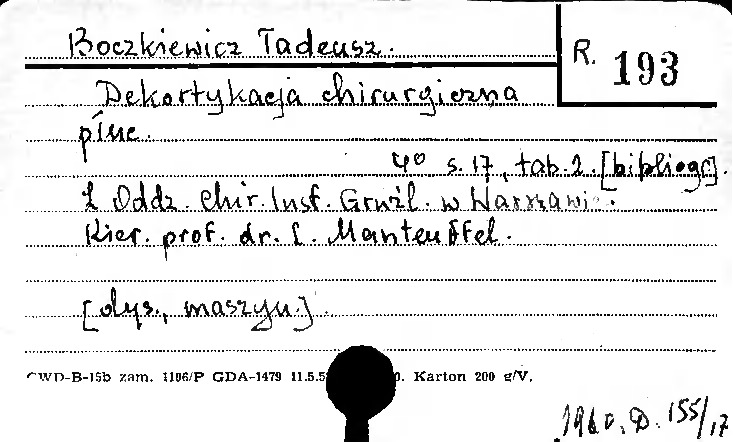 Boczkiewicz Tadeusz.
R. 193
Dekortykacja chirurgiczna
płuc.
4° s. 17, tab. 2. [bibliogr].
Z Oddz. Chir. Inst. Gruźl. w Warszawie.
Kier. prof. dr. L. Manteuffel.
[dys., maszyn.]
CWD-B-15b zam. 1106/P GDA-1479 11.5.5 0. Karton 200 g/V.
1960. D. 155/17